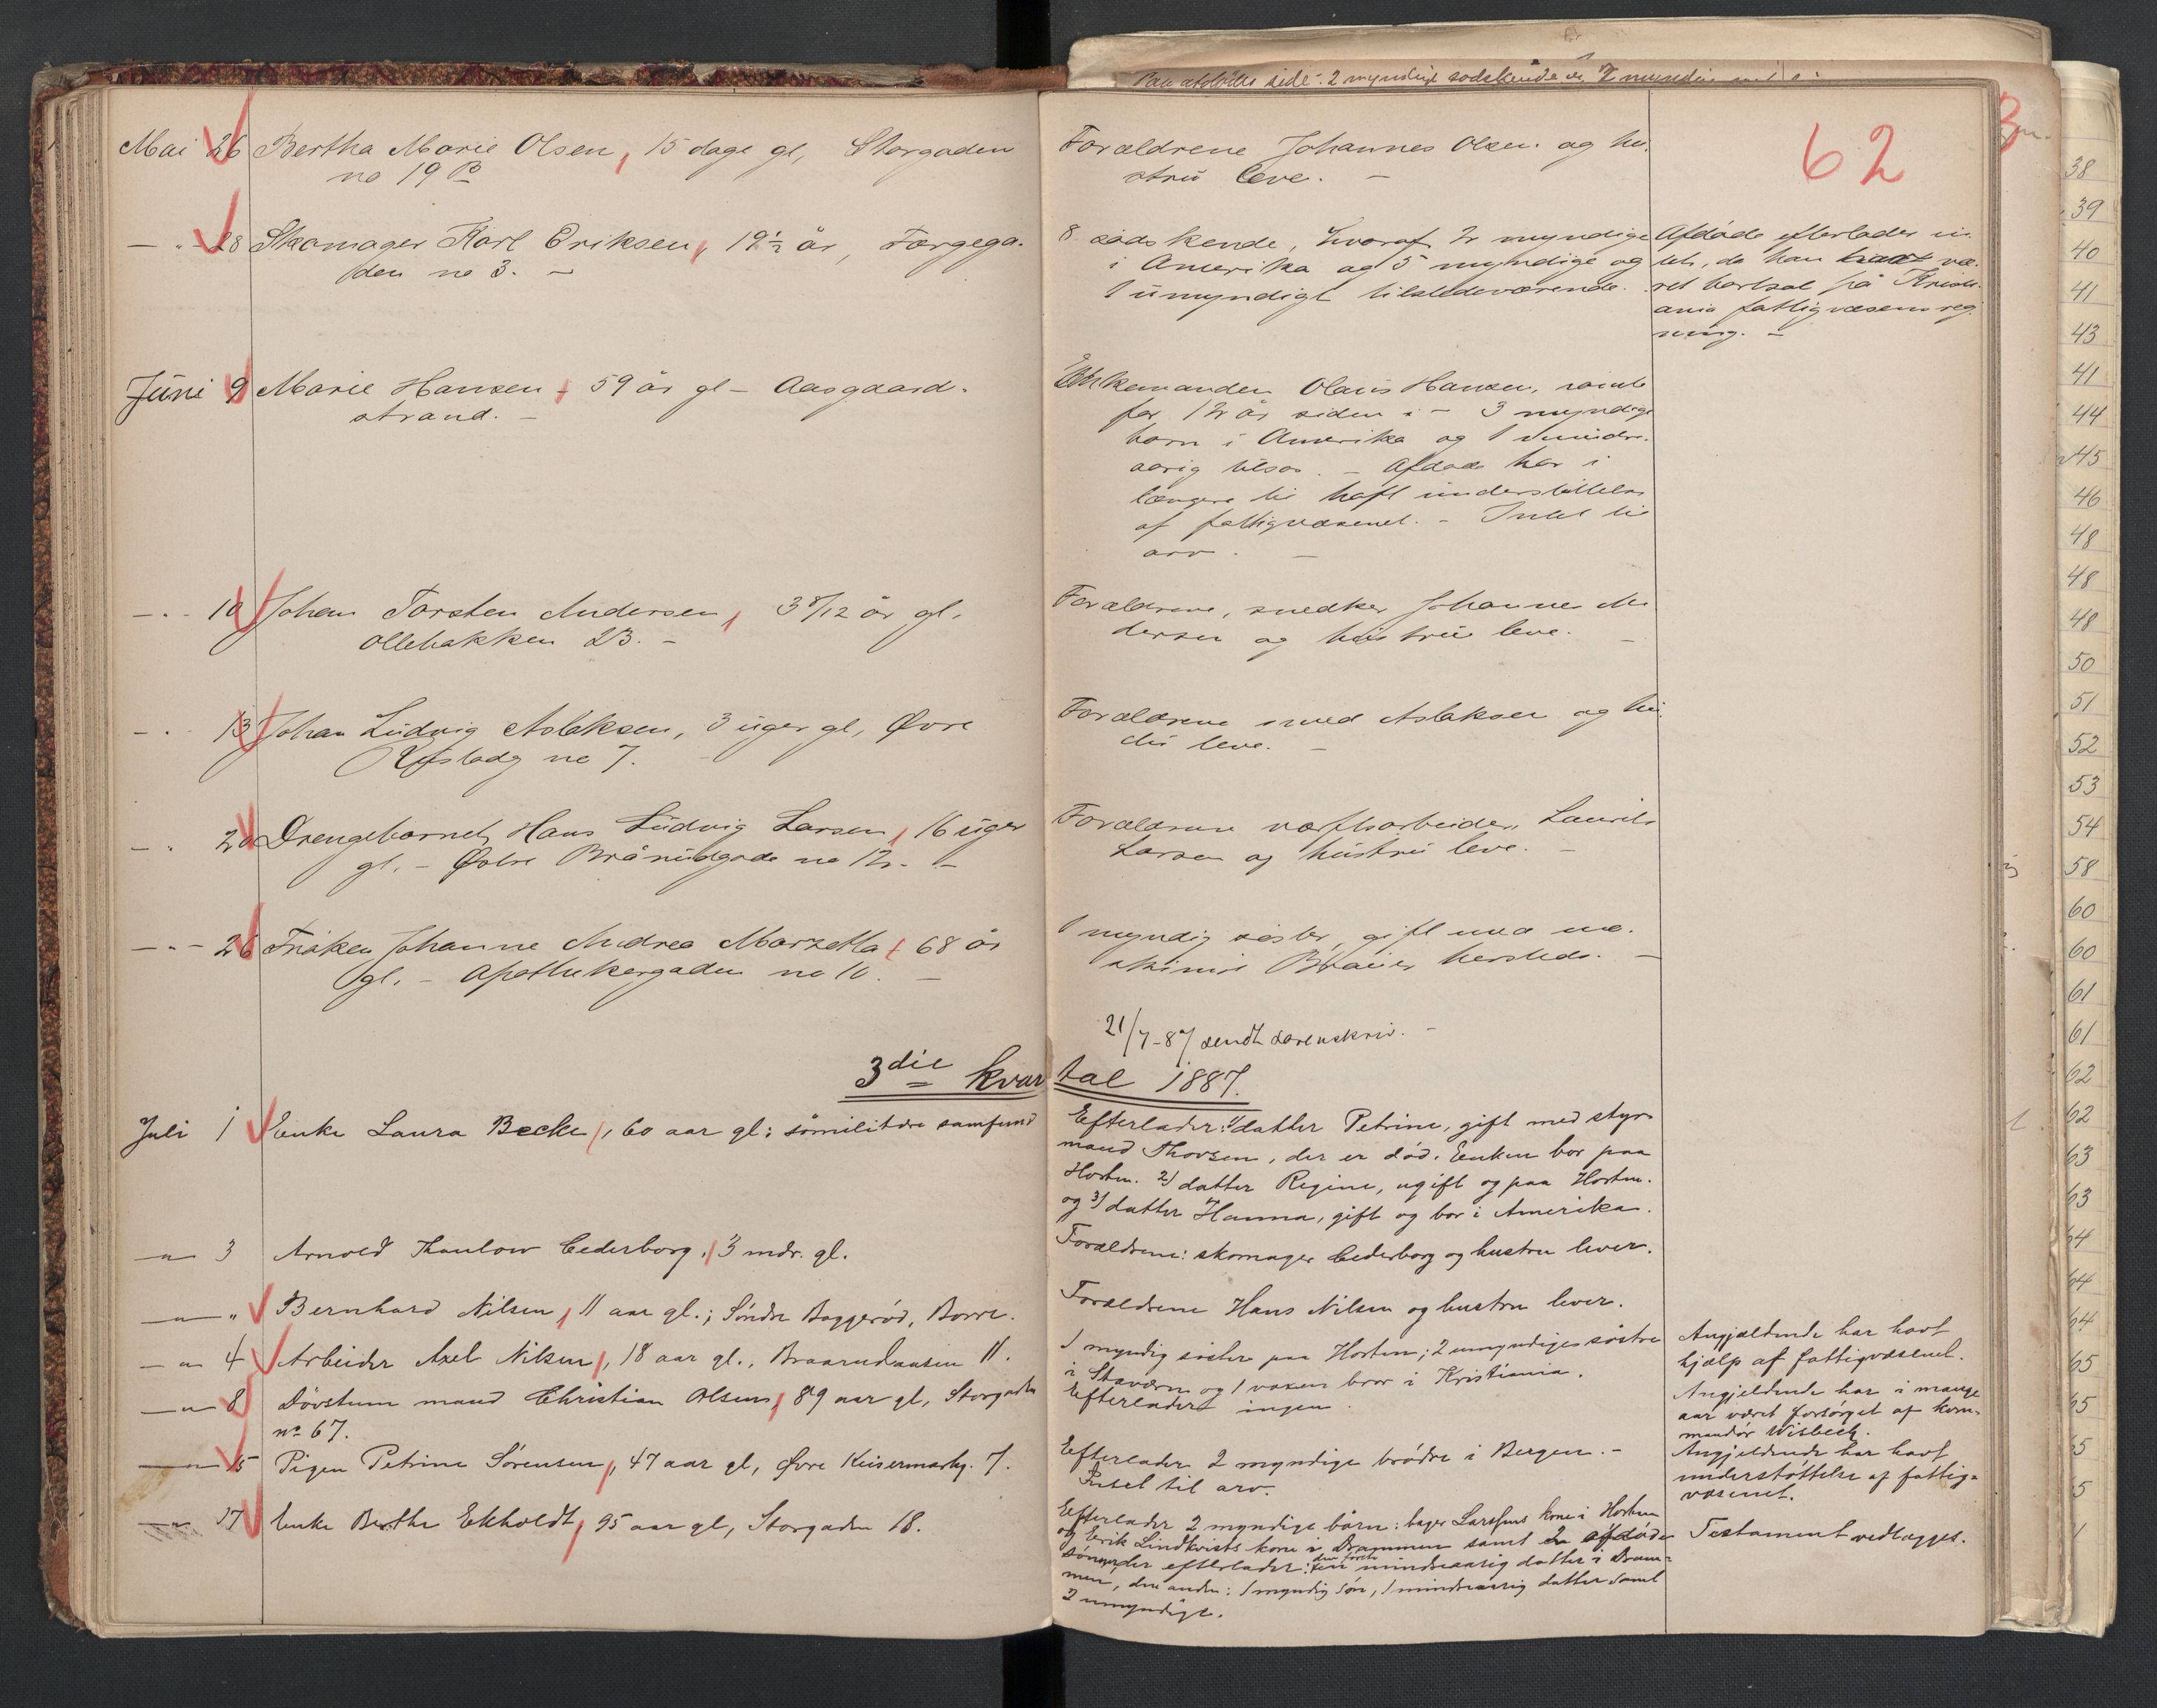 62
Mai 26 Bertha Marie Olsen, 15 dage gl, Storgaden
no 19 B
Forældrene Johannes Olsen og hu-
stru leve. -
- " - 28 Skomager Karl Eriksen, 19½ år, Færgega-
den no 3. -
8 sødskende, hvoraf 2 myndige
i Amerika og 5 myndige og
1 umyndigt tilstedeværende.
Afdøde efterlader in-
tet, da han havt væ-
ret bortsat på Kristi-
ania fattigvæsens reg-
ning. -
Juni 9 Marie Hansen, 59 år gl - Aasgaard-
strand. -
Enkemanden Olaus Hansen, rømte
for 12 år siden - 3 myndige
børn i Amerika og 1 mindre-
aarig . - Afdøde har i
længere tid haft understøttelse
af fattigvæsenet. - Intet til
arv. -
- " - 10 Johan Torsten Andersen, 3 8/12 år gl.
Ollebakken 23. -
Forældrene, snedker Johannes An-
dersen og hustru leve. -
- " - 13 Johan Ludvig Aslaksen, 3 uger gl, Øvre
no 7. -
Forældrene smed Aslaksen og hu-
stru leve. -
- " 20 Drengebarnet Hans Ludvig Larsen, 16 uger
gl. - Øvre Brårudgade no 12. -
Forældrene værftsarbeider Laurits
Larsen og hustru leve. -
- " - 26 Frøken Johanne Andrea Marzetta, 68 år
gl. - Apothekergaden no 10. -
1 myndig søster, gift med ma-
skinist Brauer hersteds. -
21/7-87 sendt sorenskriv. -
3die kvartal 1887.
Juli 1 Enke Laura Becke, 60 aar gl; sømilitære samfund
Efterlader: 1) datter Petrine, gift med styr-
mand Thorsen, der er død. Enken bor paa
Horten. 2) datter Regine, ugift og paa Horten.
og 3) datter Hanna, gift og bor i Amerika.
-"- 3 Arnold Thaulow Cederborg, 3 mdr. gl.
Forældrene: skomager Cederborg og hustru lever.
-"- " Bernhard Nilsen, 11 aar gl.; Søndre Baggerød, Borre.
Forældrene Hans Nilsen og hustru lever.
-"- 4 Arbeider Axel Nilsen, 18 aar gl., Braarudaasen 11.
1 myndig søster paa Horten; 2 umyndige søstre
i Stavern og 1 voxen bror i Kristiania.
Angjældende har havt
hjælp af fattigvæsenet.
-"- 8 Døvstum mand Christian Olsen, 89 aar gl, Storgaden
no 67.
Efterlader ingen.
Angjeldende har i mange
aar været forsørget af kom-
mandør Wisbech.
-"- 15 Pigen Petrine Sørensen, 47 aar gl, Øvre Keisermarkg. 7.
Efterlader 2 myndige brødre i Bergen. -
Intet til arv.
Angjeldende har havt
understøttelse af fattig-
væsenet.
-"- 17 Enke Berthe Ekholdt, 95 aar gl, Storgaden 18.
Efterlader 2 myndige børn: bager Larssens kone i Horten
og Erik Lindkvists kone i Drammen samt 2 afdøde
sønner der efterlader: den første en mindreaarig datter i Dram-
men, den anden: 1 myndig søn, 1 mindreaarig datter samt
2 umyndige.
Testament vedlægges.
38
39
40
41
43
41
44
45
46
48
48
48
50
51
52
53
54
58
60
60
61
61
62
62
63
63
64
64
64
65
65